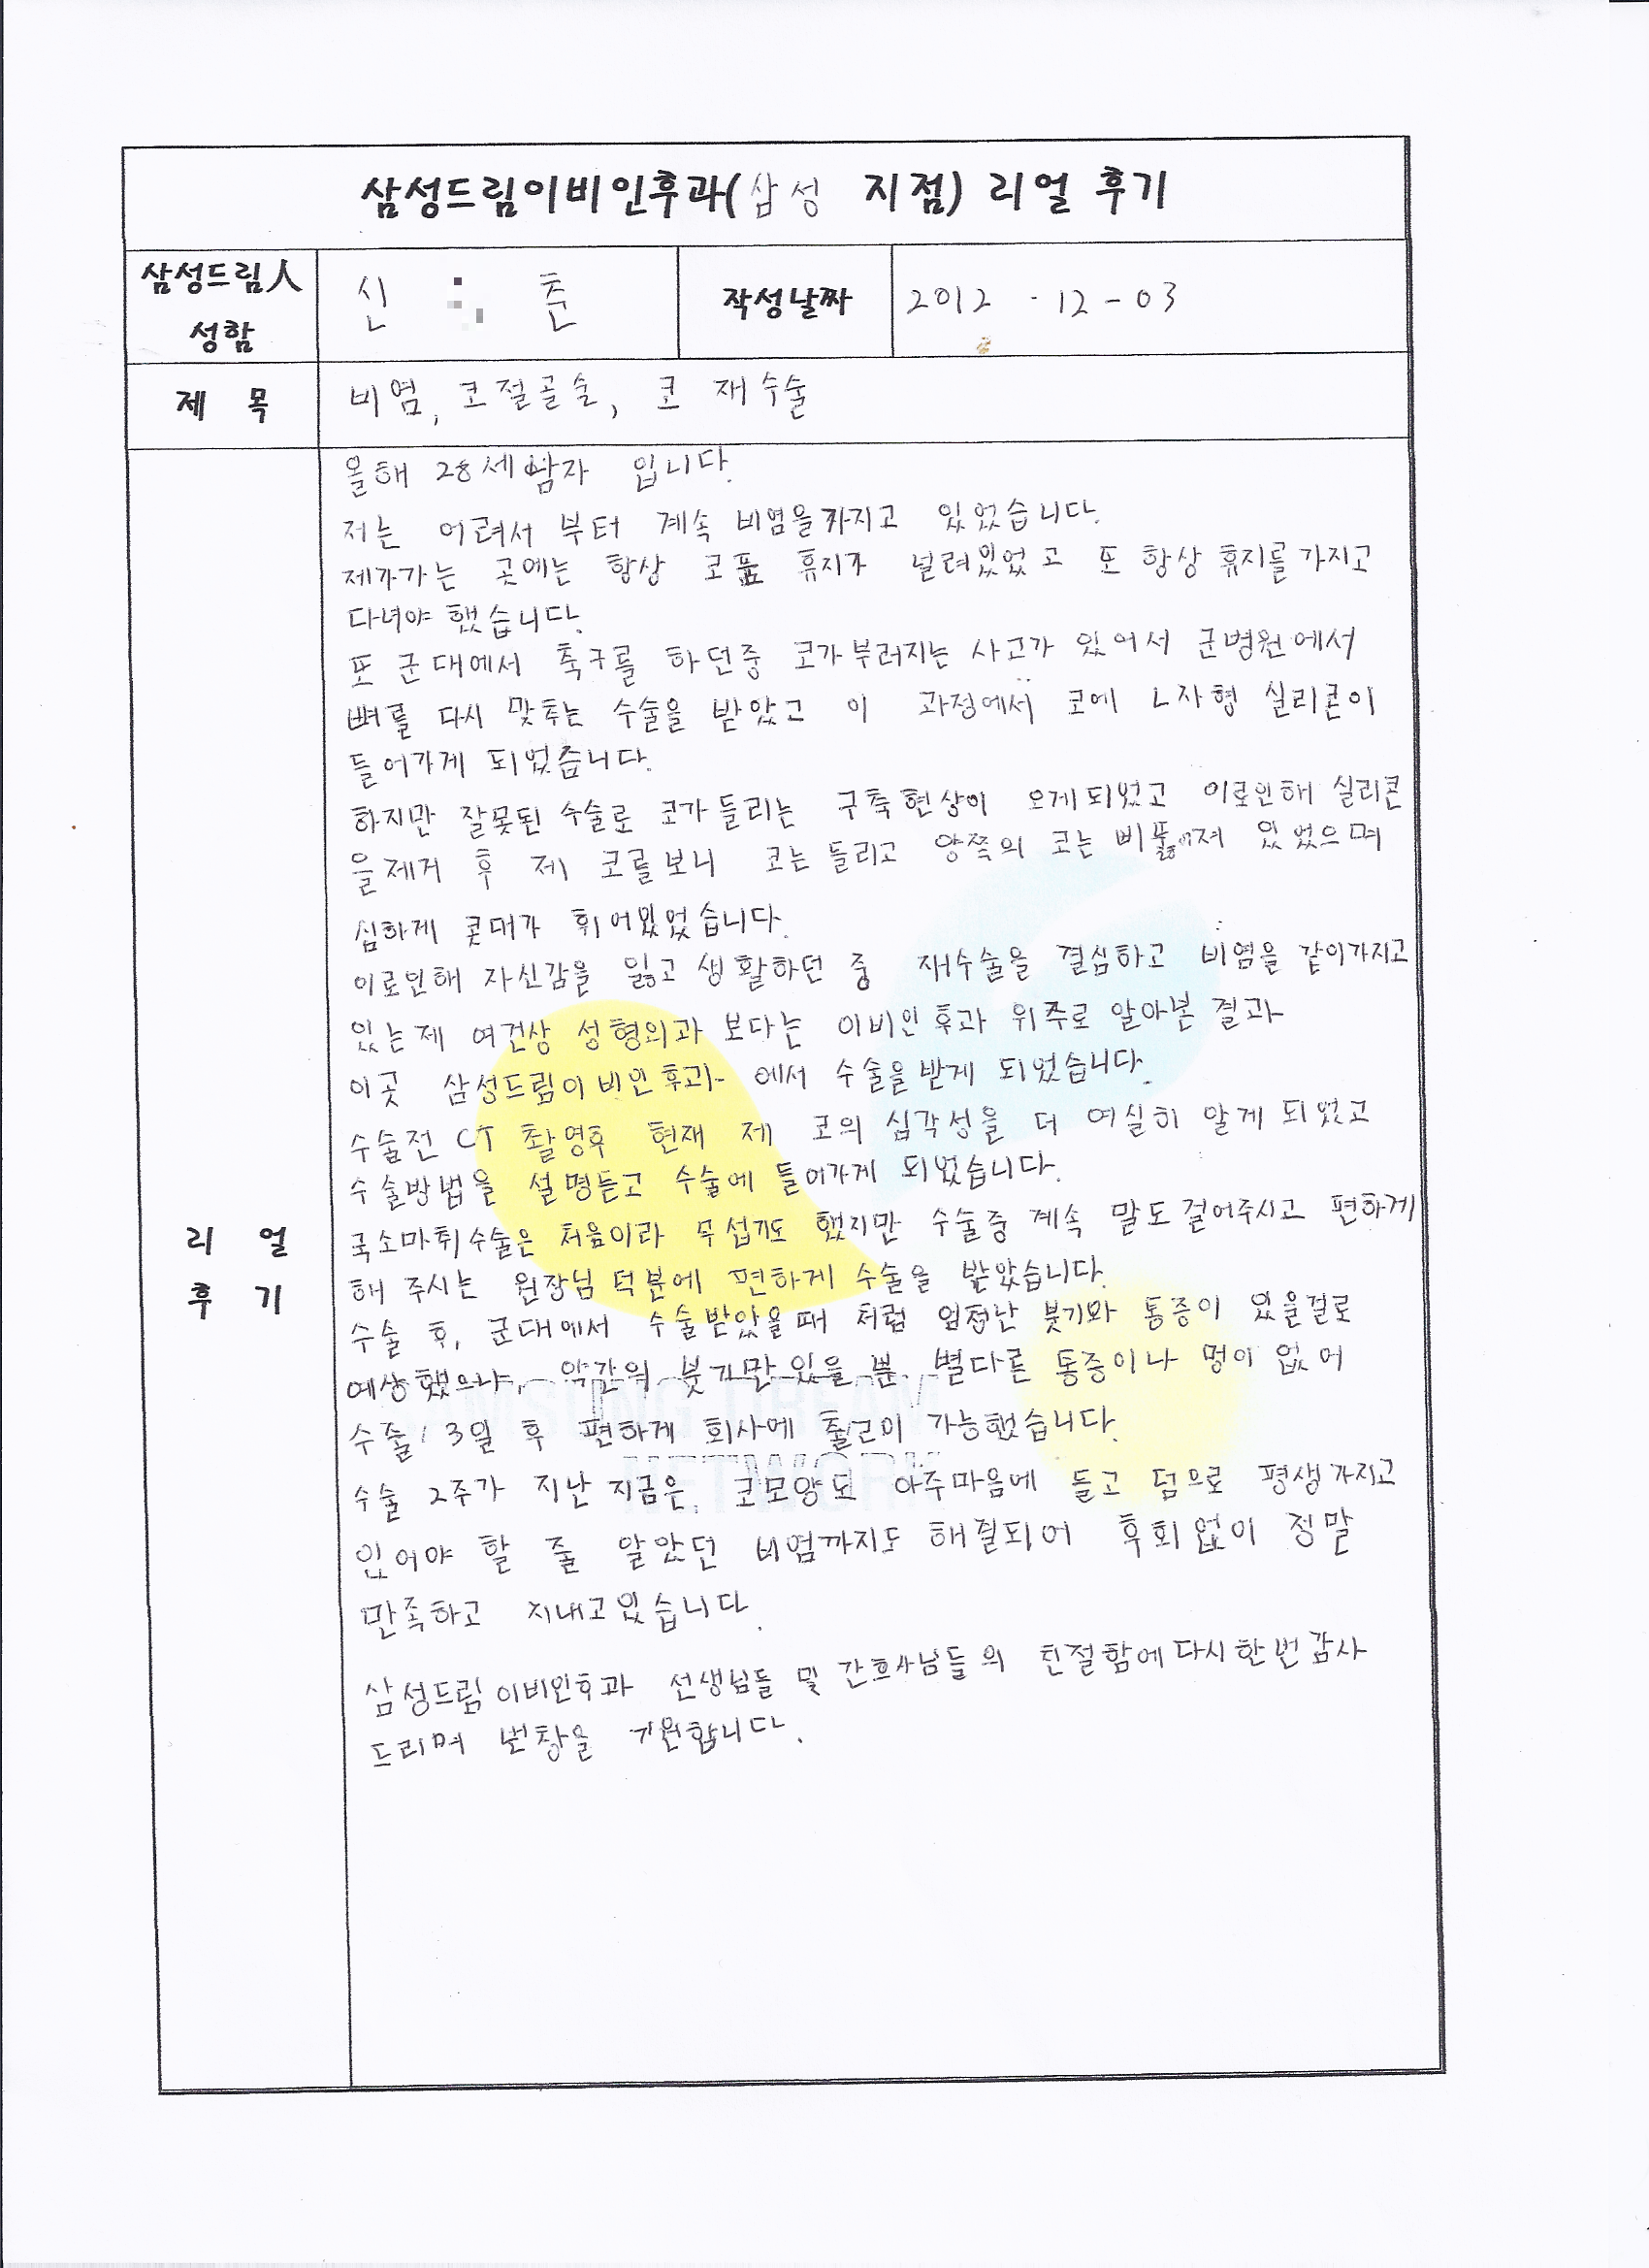 삼성드림이비인후과(삼성 지점) 리얼 후기
삼성드림人 성함
신 춘
작성날짜
2012 - 12 - 03
제 목
비염, 코절골술, 코 재수술
리 얼
후 기
올해 28세 남자 입니다.
저는 어려서 부터 계속 비염을 가지고 있었습니다.
제가가는 곳에는 항상 코푼 휴지가 널려있었고 또 항상 휴지를 가지고
다녀야 했습니다.
또 군대에서 축구를 하던중 코가부러지는 사고가 있어서 군병원에서
뼈를 다시 맞추는 수술을 받았고 이 과정에서 코에 L자형 실리콘이
들어가게 되었습니다.
하지만 잘못된 수술로 코가들리는 구축현상이 오게되었고 이로인해 실리콘
을제거 후 제 코를보니 코는들리고 양쪽의 코는 비뚫어져 있었으며
심하게 콧대가 휘어있었습니다.
이로인해 자신감을 잃고 생활하던 중 재수술을 결심하고 비염을 같이가지고
있는제 여건상 성형외과 보다는 이비인후과 위주로 알아본 결과
이곳 삼성드림이비인후과 에서 수술을받게 되었습니다.
수술전 CT 촬영후 현재 제 코의 심각성을 더 여실히 알게 되었고
수술방법을 설명듣고 수술에 들어가게 되었습니다.
국소마취수술은 처음이라 무섭기도 했지만 수술중 계속 말도걸어주시고 편하게
해 주시는 원장님 덕분에 편하게 수술을 받았습니다.
수술 후, 군대에서 수술받았을때 처럼 엄청난 붓기와 통증이 있을걸로
예상했으나, 약간의 붓기만 있을 뿐 별다른 통증이나 멍이 없어
수술 3일 후 편하게 회사에 출근이 가능했습니다.
수술 2주가 지난 지금은 코모양도 아주마음에 들고 덤으로 평생가지고
있어야 할 줄 알았던 비염까지도 해결되어 후회없이 정말
만족하고 지내고있습니다.
삼성드림이비인후과 선생님들 및 간호사님들의 친절함에다시한번감사
드리며 번창을 기원합니다.
SAMSUNG DREAM
NETWORK